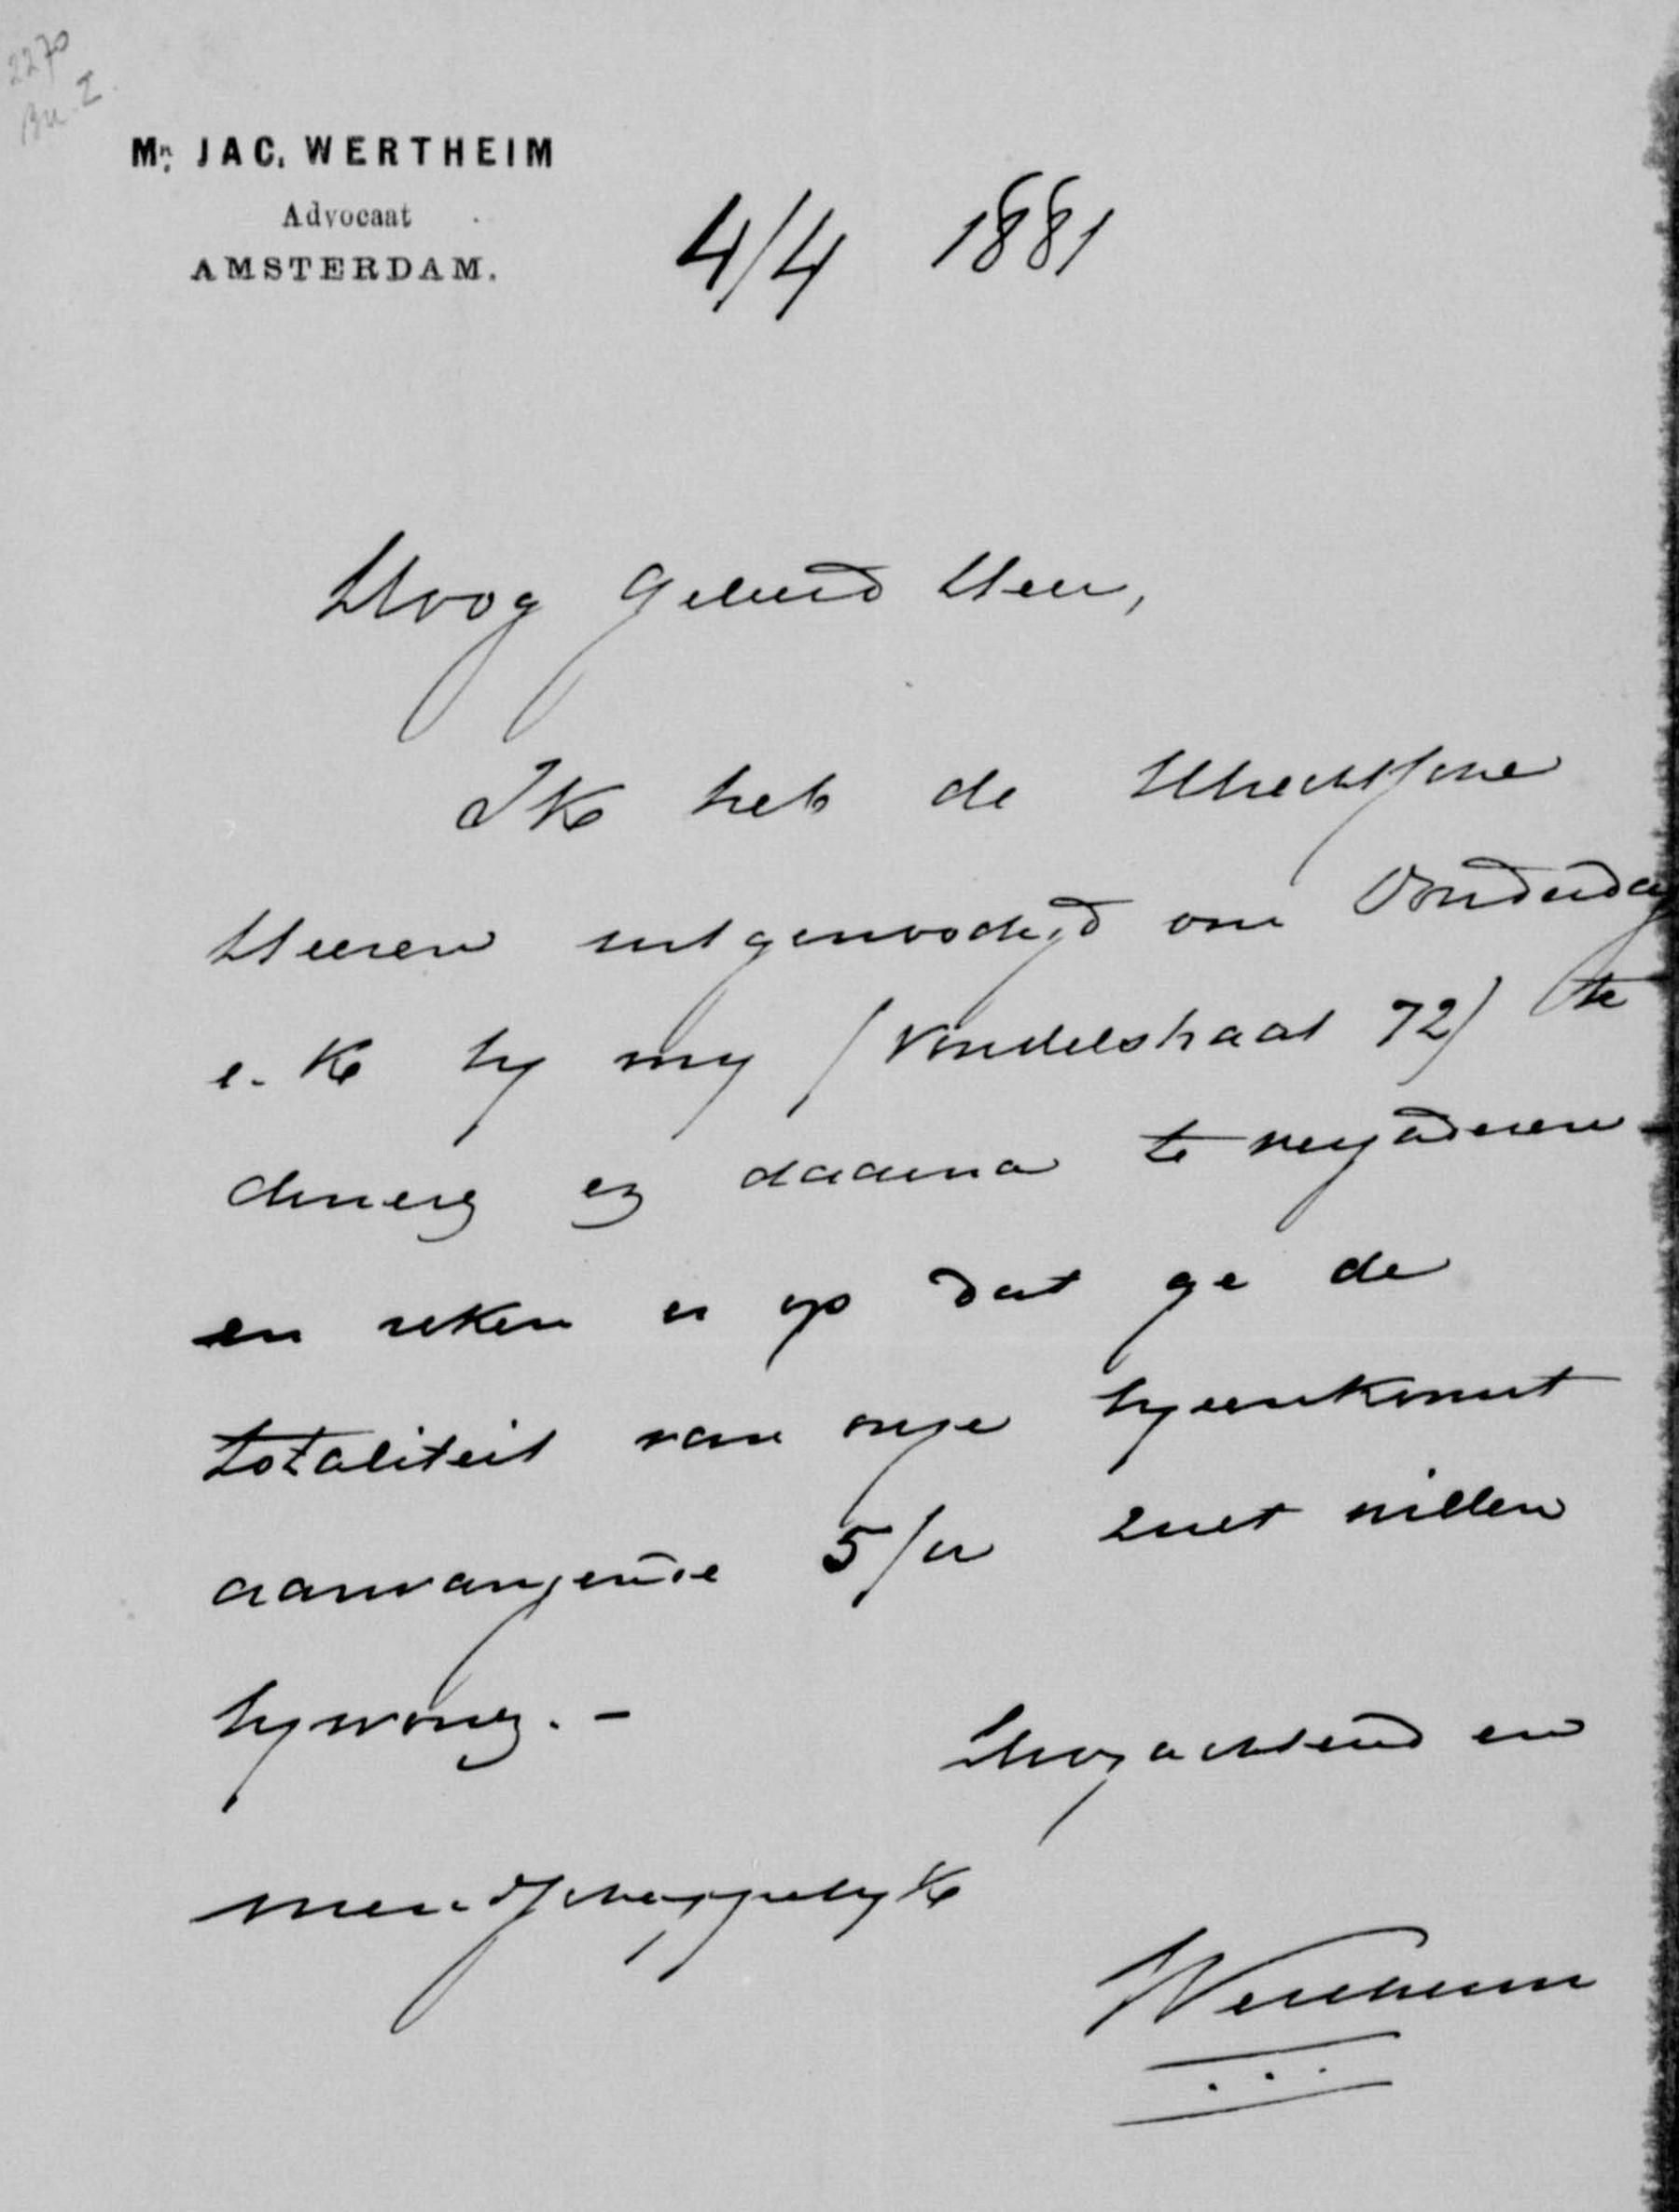 2270
Br. I.
Mr. JAC. WERTHEIM
Advocaat
AMSTERDAM.
4/4 1881
Hoog Geleerd Heer,
Ik heb de Utrechtsche
Heeren uitgenoodigd om Donderdag
e.k by my (Vondelstraat 72) te
dineren en daarna te vergaderen
en reken er op dat ge de
totaliteit van onze byeenkomst
aanvangende 5/u zult willen
bywonen. –
Hoogachtend en
vriendschappelyk
Wertheim